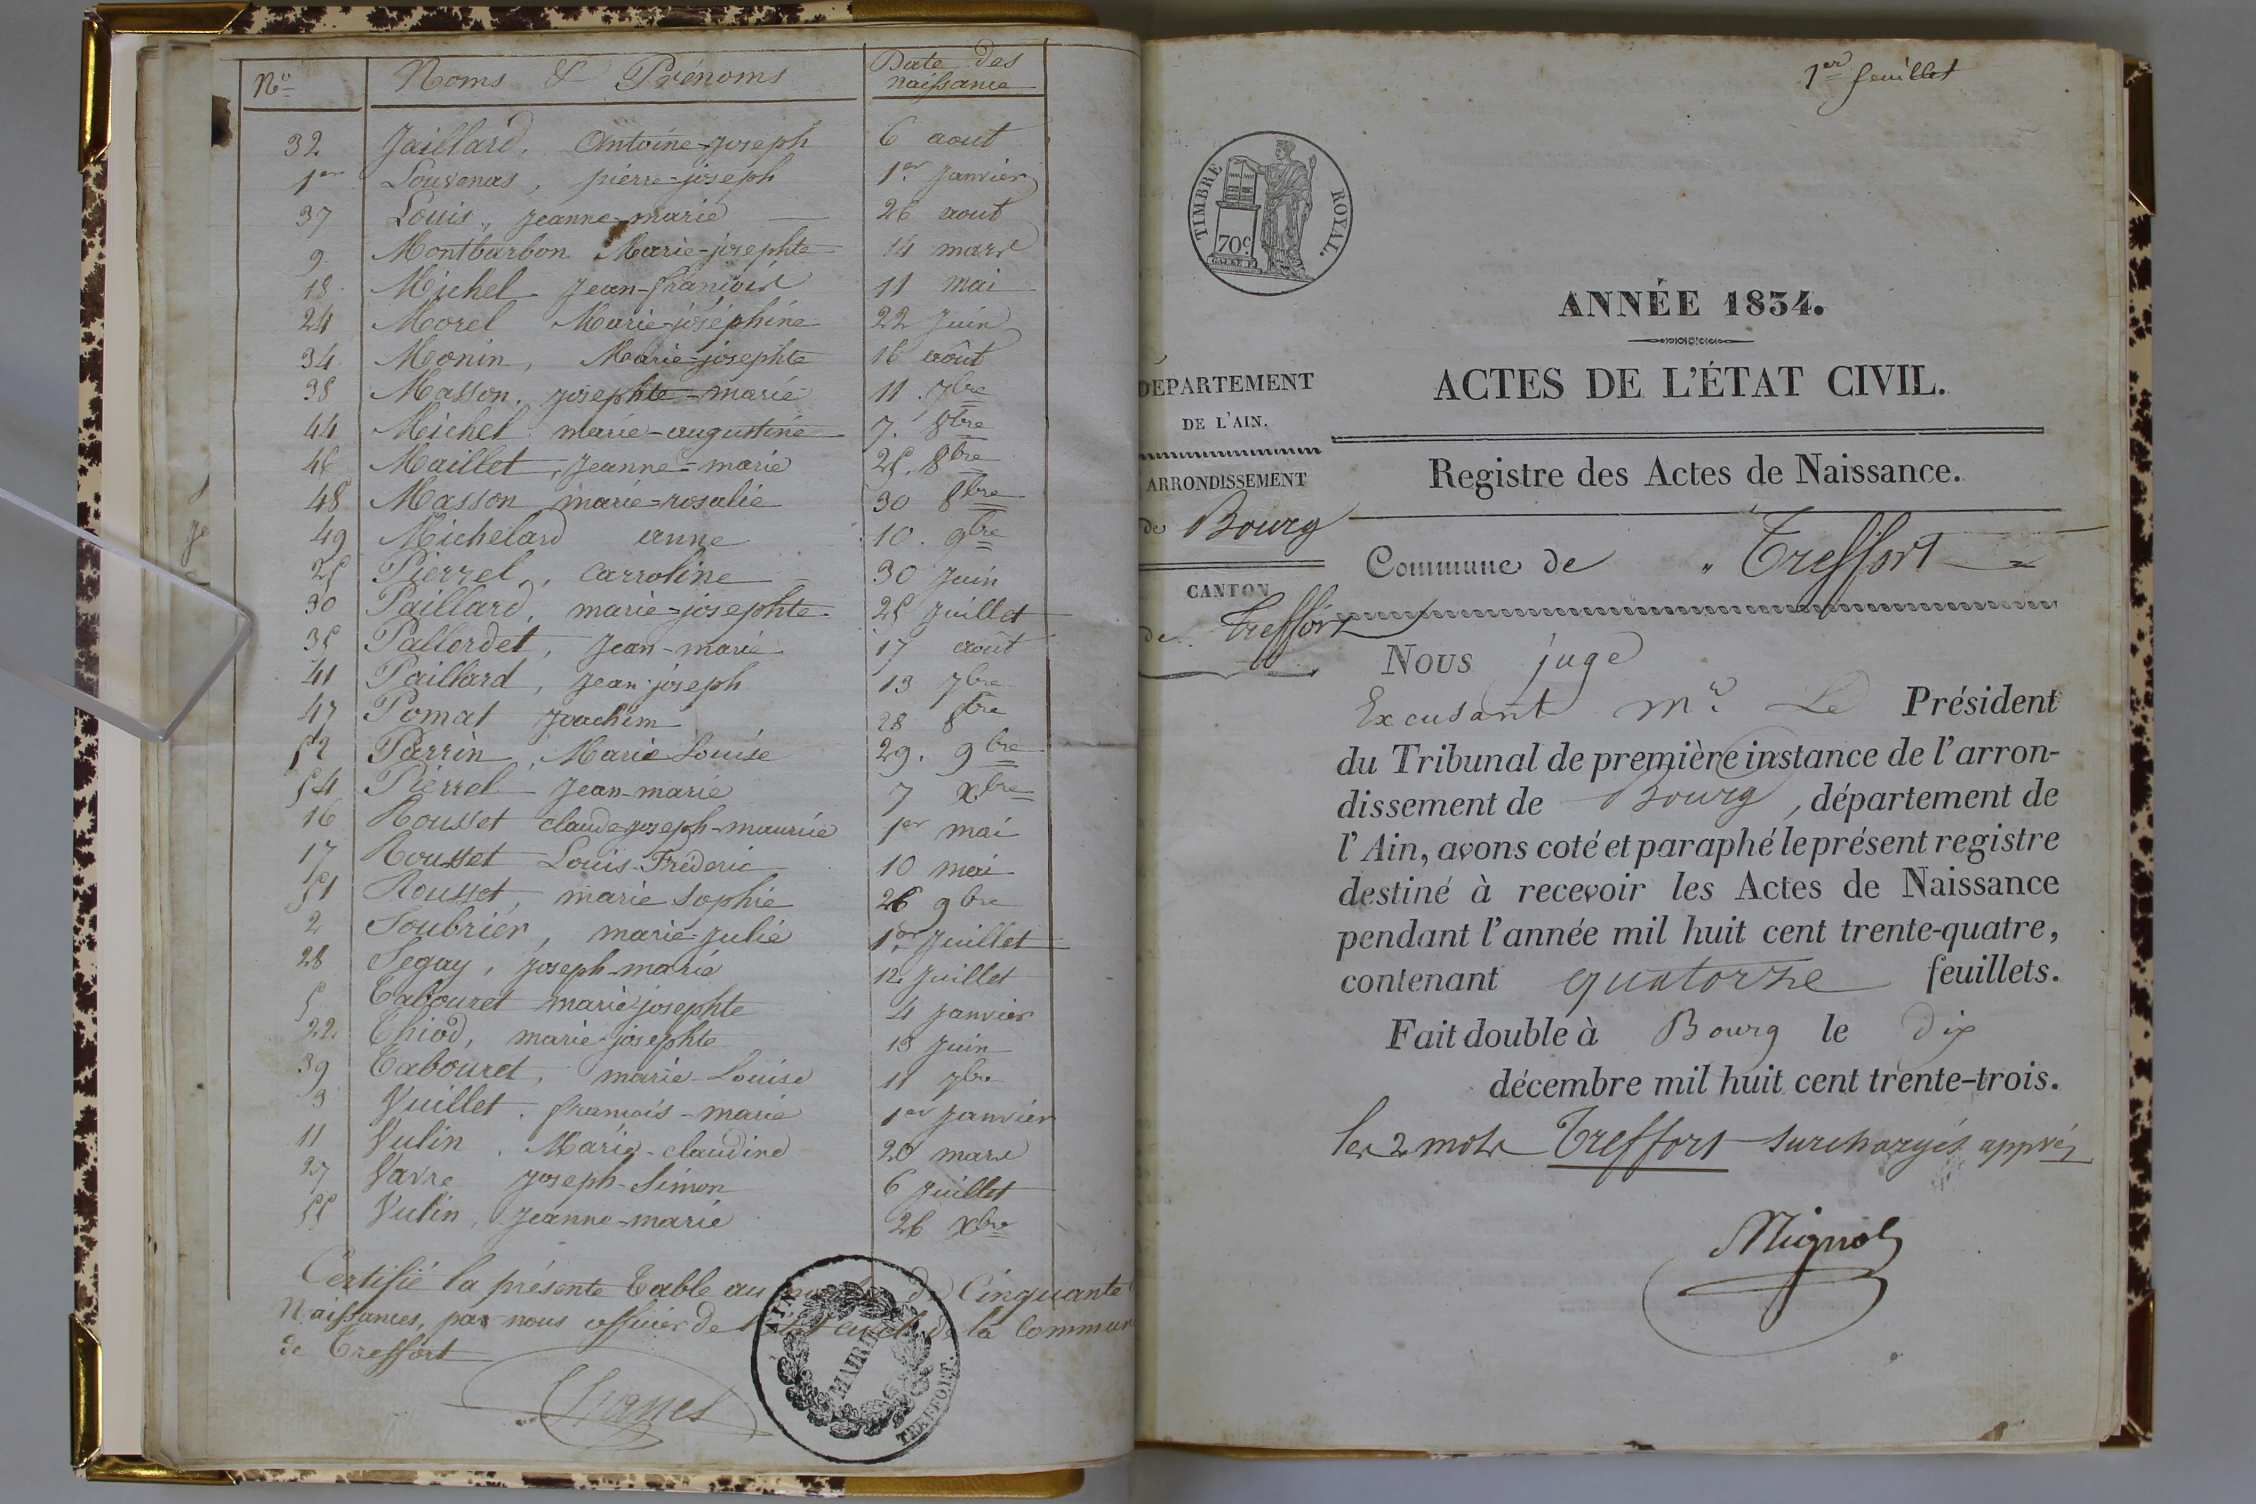 No Noms & Prénoms Date des naissance
32 Jaillard, Antoine-Joseph 6 aout
1er Louvonas, pierre-joseph 1er Janvier
37 Louis, Jeanne-marie 26 aout
9. Montbarbon Marie-josephte 14 mars
18 Michel Jean-françois 11 mai
24 Morel Marie-joséphine 22 Juin
34 Monin, Marie-josephte 16 août
38 Masson, josephte-marie 11. 7bre
44 Michel marie-augustine 7. 8bre
46 Maillet, Jeanne-marie 25. 8bre
48 Masson marie-rosalie 30 8bre
49 Michelard anne 10. 9bre
25 Pierrel, Carroline 30 Juin
30 Paillard, marie-josephte 25 Juillet
35 Pallordet, Jean-marie 17 août
41 Paillard, Jean-joseph 13 7bre
47 Pomat Joachim 28 8bre
52 Perrin, Marie Louise 29. 9bre
54 Pierrel Jean-marie 7 Xbre
16 Rousset claude-joseph-maurice 1er mai
17 Rousset Louis-Fréderic 10 mai
51 Rousset, marie Sophie 26 9bre
2 Soubrier, marie-Julie 1er Juillet
28 Segay, Joseph-marie 12 Juillet
5 Tabouret marie josephte 4 Janvier
22 Thiod, marie-josephte 13 Juin
39 Tabouret, marie-Louise 11 7bre
3 Vuillet, françois-marie 1er Janvier
11 Vulin, Marie-claudine 20 mars
27 Vavre Joseph-Simon 6 Juillet
55 Vulin, Jeanne-marie 26 Xbre
Certifié la présente Table au de Cinquante
Naissances, par nous officier de civil de la Commune
de Treffort
AIN
MAIRIE
TREFFORT.
1er feuillet
TIMBRE ROYAL.
70c
ANNÉE 1834.
ACTES DE L'ÉTAT CIVIL.
Registre des Actes de Naissance.
DÉPARTEMENT
DE L'AIN.
ARRONDISSEMENT
de Bourg
CANTON
de Treffort
Commune de Treffort
Nous juge
Excusant Mr Le Président
du Tribunal de première instance de l'arron-
dissement de Bourg, département de
l'Ain, avons coté et paraphé le présent registre
destiné à recevoir les Actes de Naissance
pendant l'année mil huit cent trente-quatre,
contenant quatorze feuillets.
Fait double à Bourg le dix
décembre mil huit cent trente-trois.
les 2 mots Treffort surchargés appvés
Mignot